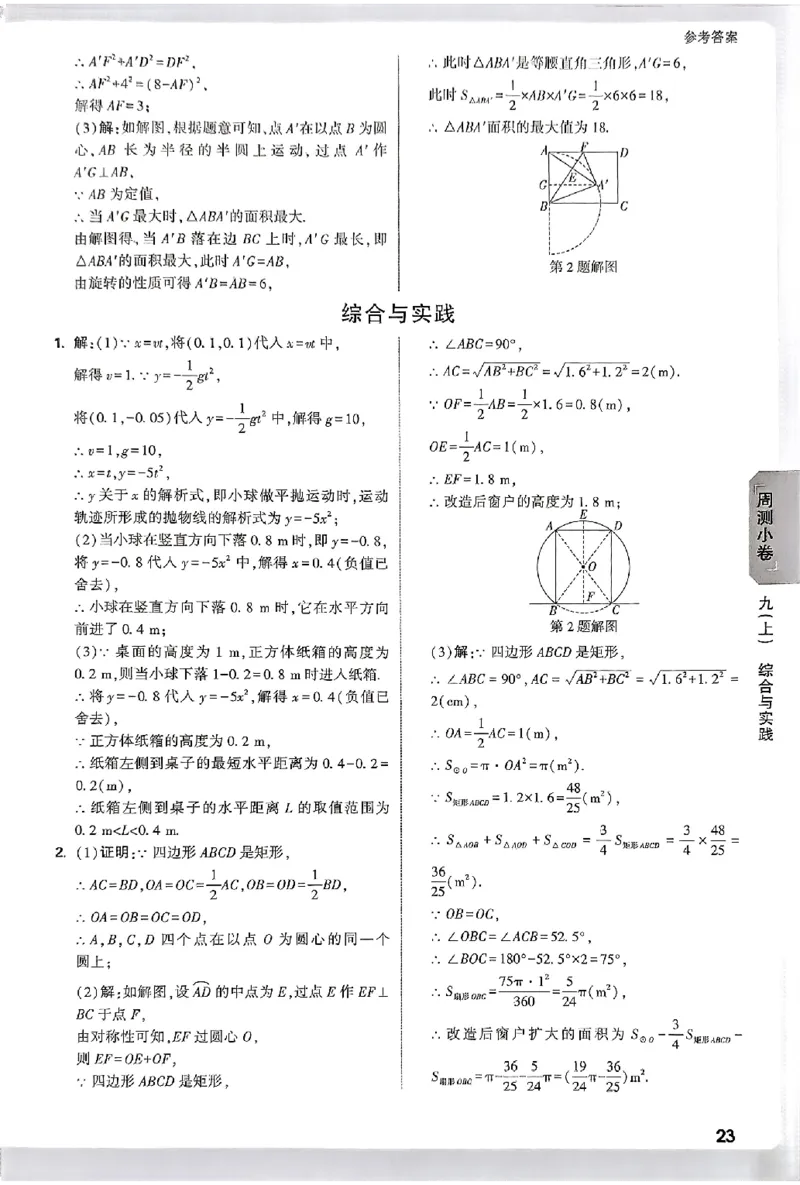 参考答案
∴A'F²+A'D²=DF²,
∴AF²+4²=(8-AF)²,
解得AF=3;
(3)解:如解图,根据题意可知,点A'在以点B为圆
心,AB 长为半径的半圆上运动,过点 A' 作
A'G⊥AB,
∵AB为定值,
∴当A'G最大时,△ABA'的面积最大.
由解图得,当 A'B 落在边 BC 上时,A'G 最长,即
△ABA'的面积最大,此时A'G=AB,
由旋转的性质可得A'B=AB=6,
∴此时△ABA'是等腰直角三角形,A'G=6,
此时S△ABA'=1/2×AB×A'G=1/2×6×6=18,
∴△ABA'面积的最大值为18.
A F D
E
G A'
B C
第2题解图
综合与实践
1. 解:(1)∵x=vt,将(0.1,0.1)代入x=vt中,
解得v=1.∵y=-1/2gt²,
将(0.1,-0.05)代入y=-1/2gt²中,解得g=10,
∴v=1,g=10,
∴x=t,y=-5t²,
∴y关于x的解析式,即小球做平抛运动时,运动
轨迹所形成的抛物线的解析式为y=-5x²;
(2)当小球在竖直方向下落0.8 m时,即y=-0.8,
将y=-0.8代入y=-5x²中,解得x=0.4(负值已
舍去),
∴小球在竖直方向下落0.8 m时,它在水平方向
前进了0.4 m;
(3)∵桌面的高度为1 m,正方体纸箱的高度为
0.2 m,则当小球下落1-0.2=0.8 m时进入纸箱.
∴将y=-0.8代入y=-5x²,解得x=0.4(负值已
舍去),
∵正方体纸箱的高度为0.2 m,
∴纸箱左侧到桌子的最短水平距离为0.4-0.2=
0.2(m),
∴纸箱左侧到桌子的水平距离L的取值范围为
0.2 m<L<0.4 m.
2. (1)证明:∵四边形ABCD是矩形,
∴AC=BD,OA=OC=1/2AC,OB=OD=1/2BD,
∴OA=OB=OC=OD,
∴A,B,C,D四个点在以点O为圆心的同一个
圆上;
(2)解:如解图,设AD的中点为E,过点E作EF⊥
BC于点F,
由对称性可知,EF过圆心O,
则EF=OE+OF,
∵四边形ABCD是矩形,
∴∠ABC=90°,
∴AC=√AB²+BC²=√1.6²+1.2²=2(m).
∵OF=1/2AB=1/2×1.6=0.8(m),
OE=1/2AC=1(m),
∴EF=1.8 m,
∴改造后窗户的高度为1.8 m;
E
A D
O
F
B C
第2题解图
(3)解:∵四边形ABCD是矩形,
∴∠ABC=90°,AC=√AB²+BC²=√1.6²+1.2²=
2(cm),
∴OA=1/2AC=1(m),
∴S⊙O=π·OA²=π(m²).
∵S矩形ABCD=1.2×1.6=48/25(m²),
∴S△AOB+S△AOD+S△COD=3/4S矩形ABCD=3/4×48/25=
36/25(m²).
∵OB=OC,
∴∠OBC=∠ACB=52.5°,
∴∠BOC=180°-52.5°×2=75°,
∴S扇形OBC=75π·1²/360=5/24π(m²),
∴改造后窗户扩大的面积为S⊙O-3/4S矩形ABCD-
S扇形OBC=π-36/25-5/24π=(19/24π-36/25)m².
周测小卷
九(上) 综合与实践
23